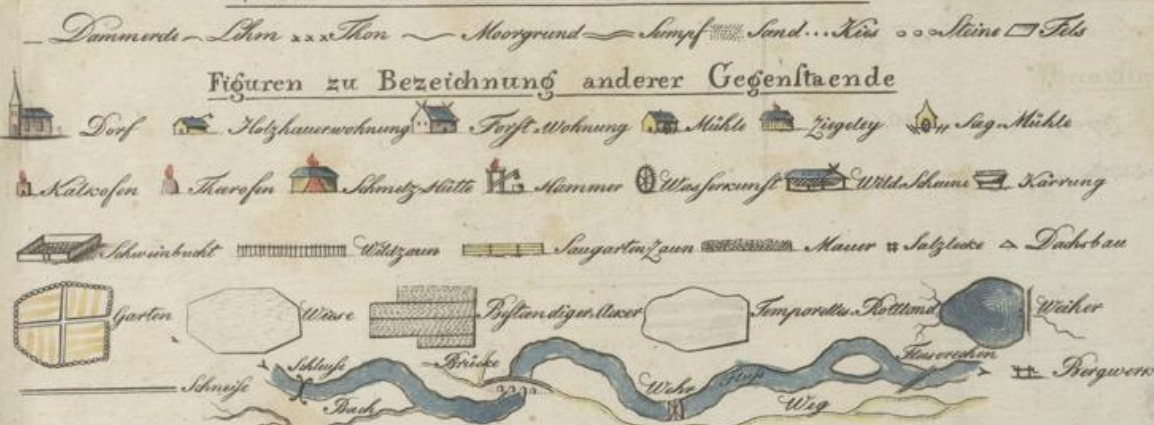 Dammerde Lehm Thon Moorgrund Sumpf Sand Kies Steine Fels
Figuren zu Bezeichnung anderer Gegenſtaende
Dorf Holzhauerwohnung Forſt-Wohnung Mühle Ziegeley Sæg-Mühle
Kalkofen Theerofen Schmelz-Hütte Hämmer Waſſerkunſt Wild Scheune Kärrung
Schweinbucht Wildzaun Saugarten Zaun Mauer Salzlecke Dachsbau
Garten Wiese Beſtändiger Acker Temporelles Rottland Weiher
Schneiſe Schleuſe Brücke Wehr Fluſs Flossrechen Bergwerk
Bach Weg